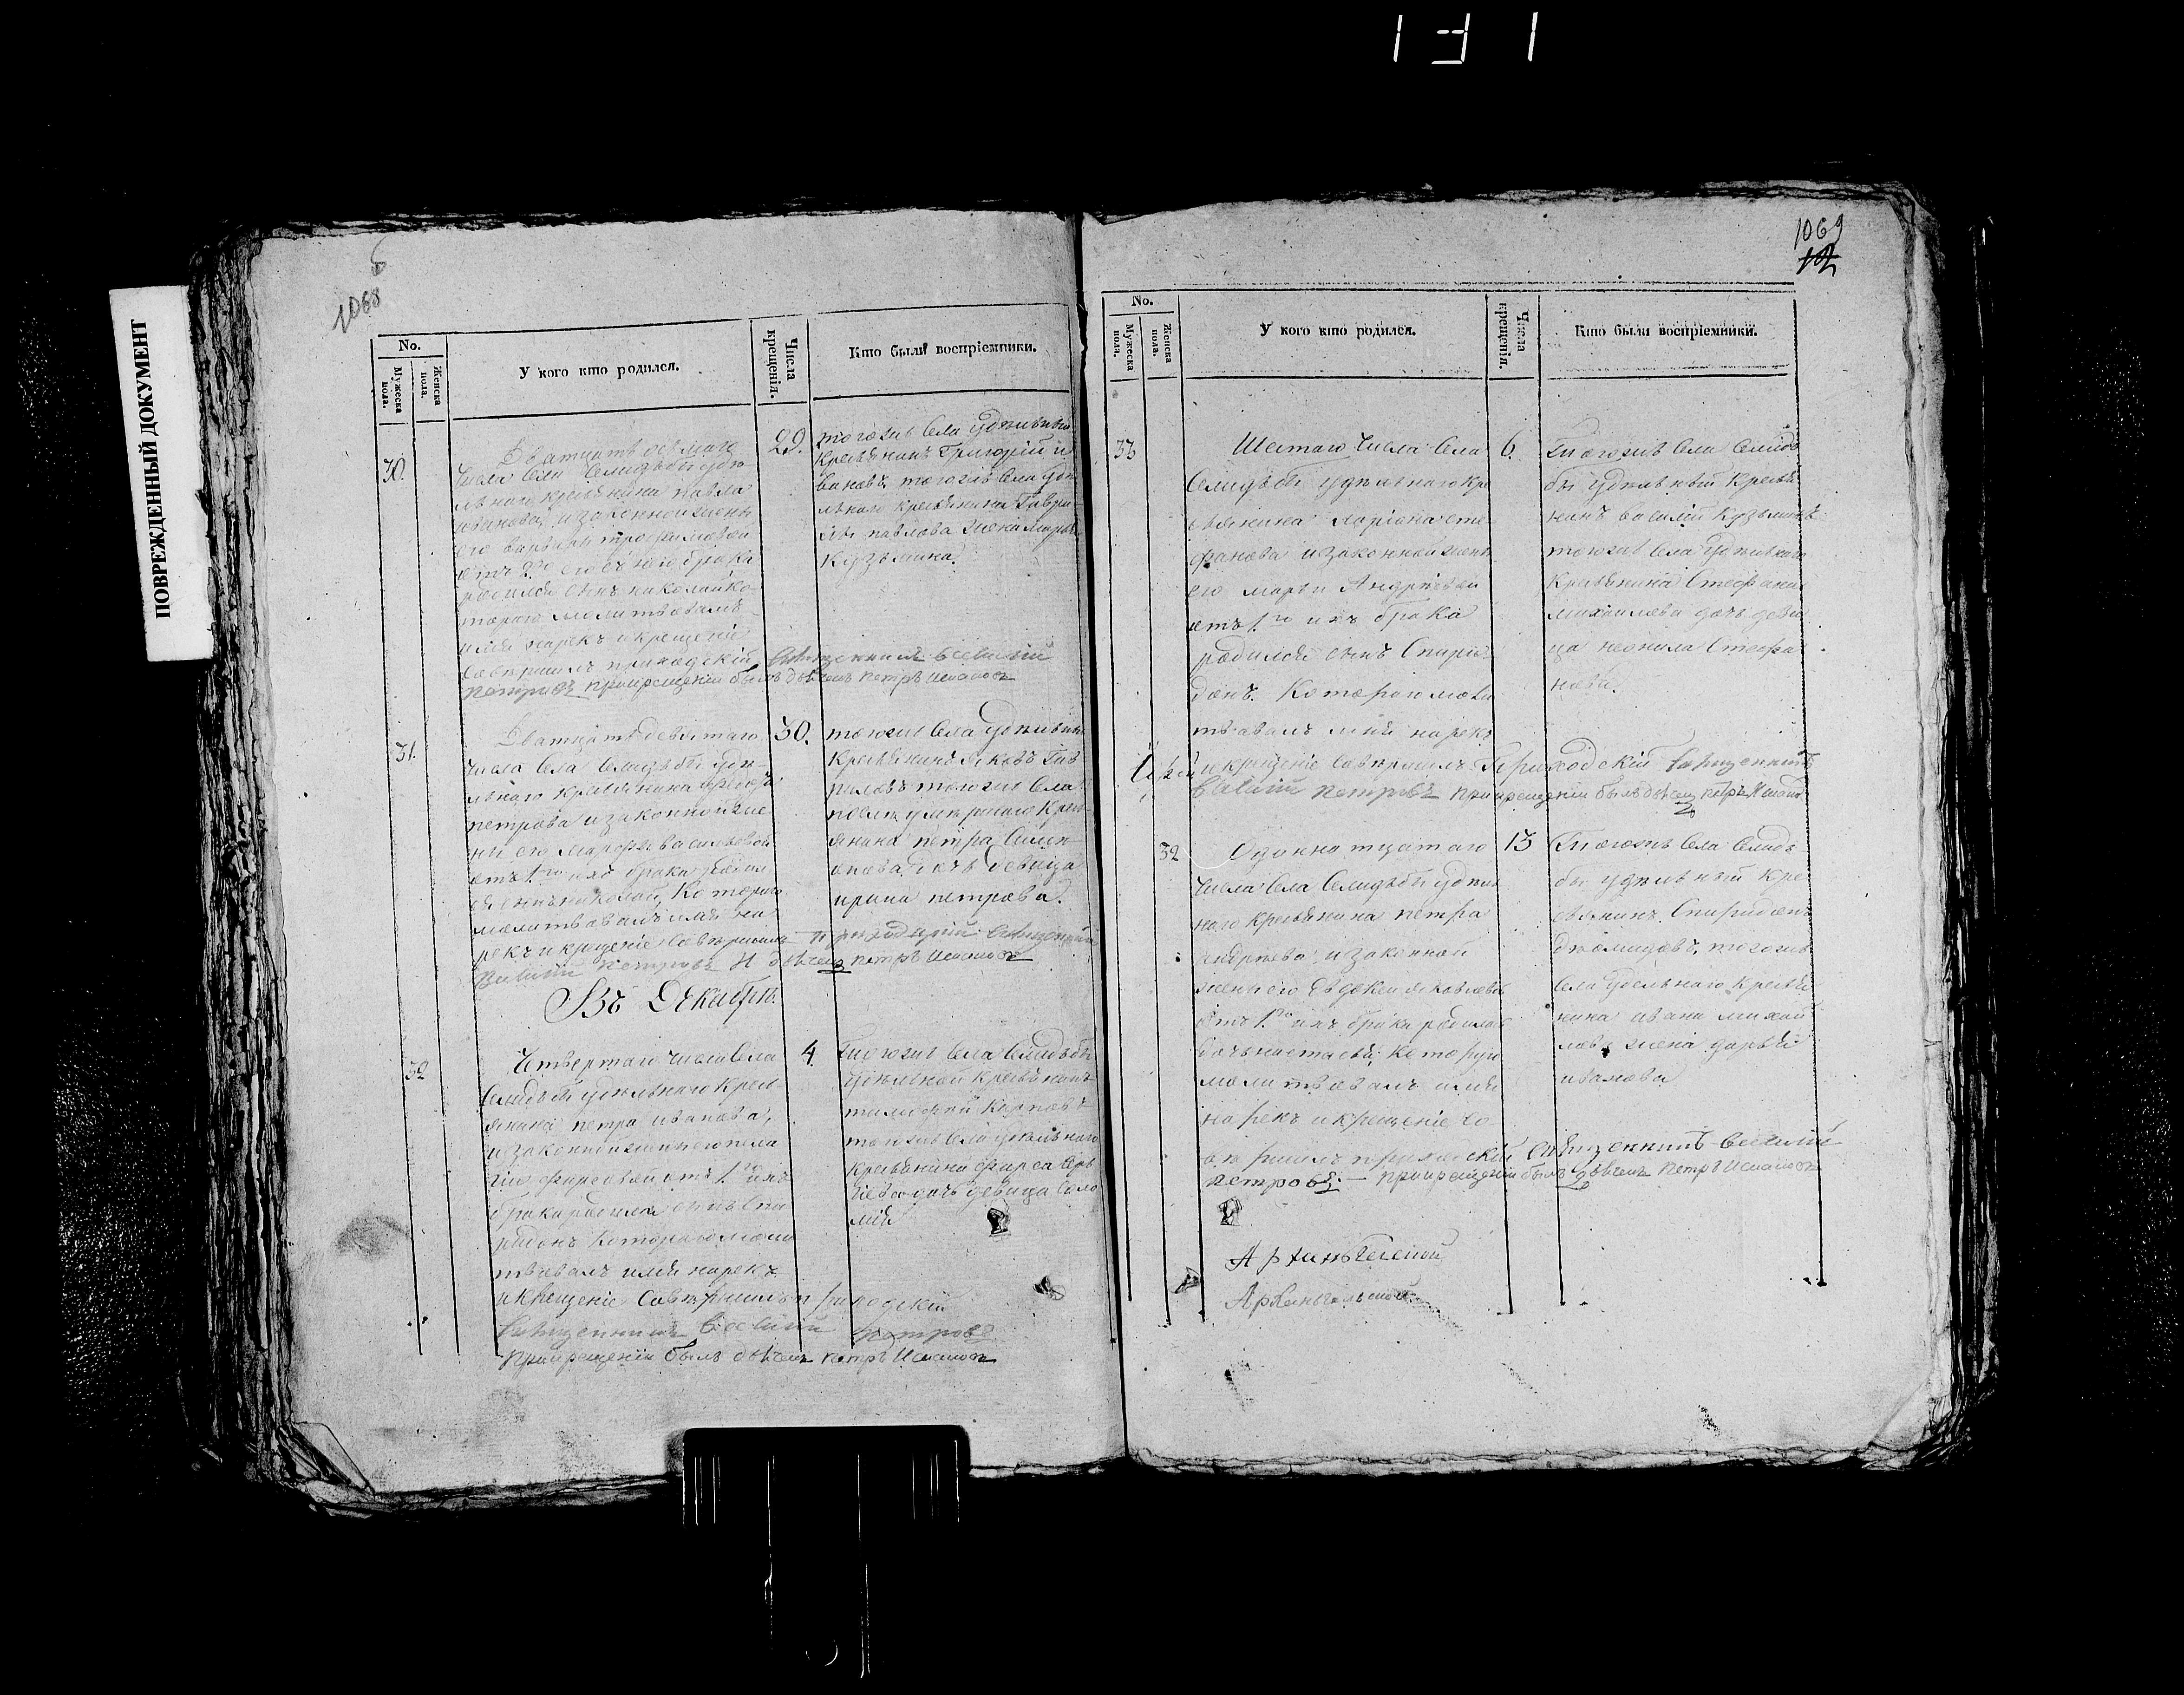 1 F 1
ПОВРЕЖДЕННЫЙ ДОКУМЕНТ
1068
No.
Мужеска пола.
Женска пола.
У кого кто родился.
Числа крещенія.
Кто были воспріемники.
30.
Двадцать осьмаго
числа Села Селидьбы удѣ
льнаго крестьянина павла
иванова, и законной жены
его варвары трофимовой
отъ 2го его брака
родился сынъ николай ко
тораго молитвовалъ
имя нарекъ и крещеніе
совѣршилъ приходскій Священникъ василій
петровъ при крещеніи былъ дьячекъ петръ
29.
тогожъ Села удѣльный
крестьянинъ Григорій и
вановъ. тогожъ Села удѣ
льнаго крестьянина Гаври
ла павлова жена марья
кузьмина.
31.
Двадцать девятаго
числа Села Селидьбы удѣ
льнаго крестьянина
петрова и законной же
ны его марфы васильевой
отъ 1го ихъ брака родил
ся сынъ николай, котораго
молитвовалъ имя на
рекъ и крещеніе совѣршилъ приходскій Священникъ
василій петровъ и дьячекъ петръ
30.
тогожъ Села удѣльный
крестьянинъ яковъ Гав
риловъ тогожъ Села
послѣ умѣршаго крес
янина петра
дочь девица
ирина петрова.
Въ Декабрѣ.
32
Четвертаго числа Села
Селидьбы удѣльнаго крест
янина петра иванова,
и законной жены его пела
гіи фирсовой отъ 1го ихъ
брака родился сынъ Спи
ридонъ котораго моли
твовалъ имя нарекъ
и крещеніе совѣршилъ приходскій
Священникъ василій петровъ
при крещеніи былъ дьячекъ петръ
4
тогожъ Села Селидьбы
удѣльной крестьянинъ
тимофей карповъ
тогожъ Села удѣльнаго
крестьянина фирса
дочь девица Соло
мія
1069
No.
Мужеска пола.
Женска пола.
У кого кто родился.
Числа крещенія.
Кто были воспріемники.
33
Шестаго числа Села
Селидьбы удѣльнаго кре
стьянина ларіона сте
фанова и законной жены
его марьи Андрѣевой
отъ 1го ихъ брака
родился сынъ Спири
донъ. котораго моли
твовалъ имя нарекъ
и крещеніе совѣршилъ приходскій Священникъ
василій петровъ при крещеніи былъ дьячекъ петръ
6.
тогожъ Села Селидь
бы удѣльный крестья
нинъ василій кузьминъ
тогожъ Села удѣльнаго
крестьянина Стефана
михайлова дочь деви
ца неонила Стефа
нова.
32
Одоннатцатаго
числа Села Селидьбы удѣль
наго крестьянина петра
андрѣева и законной
жены его Евдокеи яковлевой
отъ 1го ихъ брака родилась
дочь настасья; которую
молитвовалъ имя
нарекъ и крещеніе со
вѣршилъ приходскій Священникъ василій
петровъ. — при крещеніи былъ дьячекъ петръ
13
тогожъ Села Селидь
бы удѣльный кре
стьянинъ Спиридонъ
тогожъ
Села удельнаго крестья
нина ивана михай
лова жена дарья
иванова
Арханьгелской
Арханьгельской